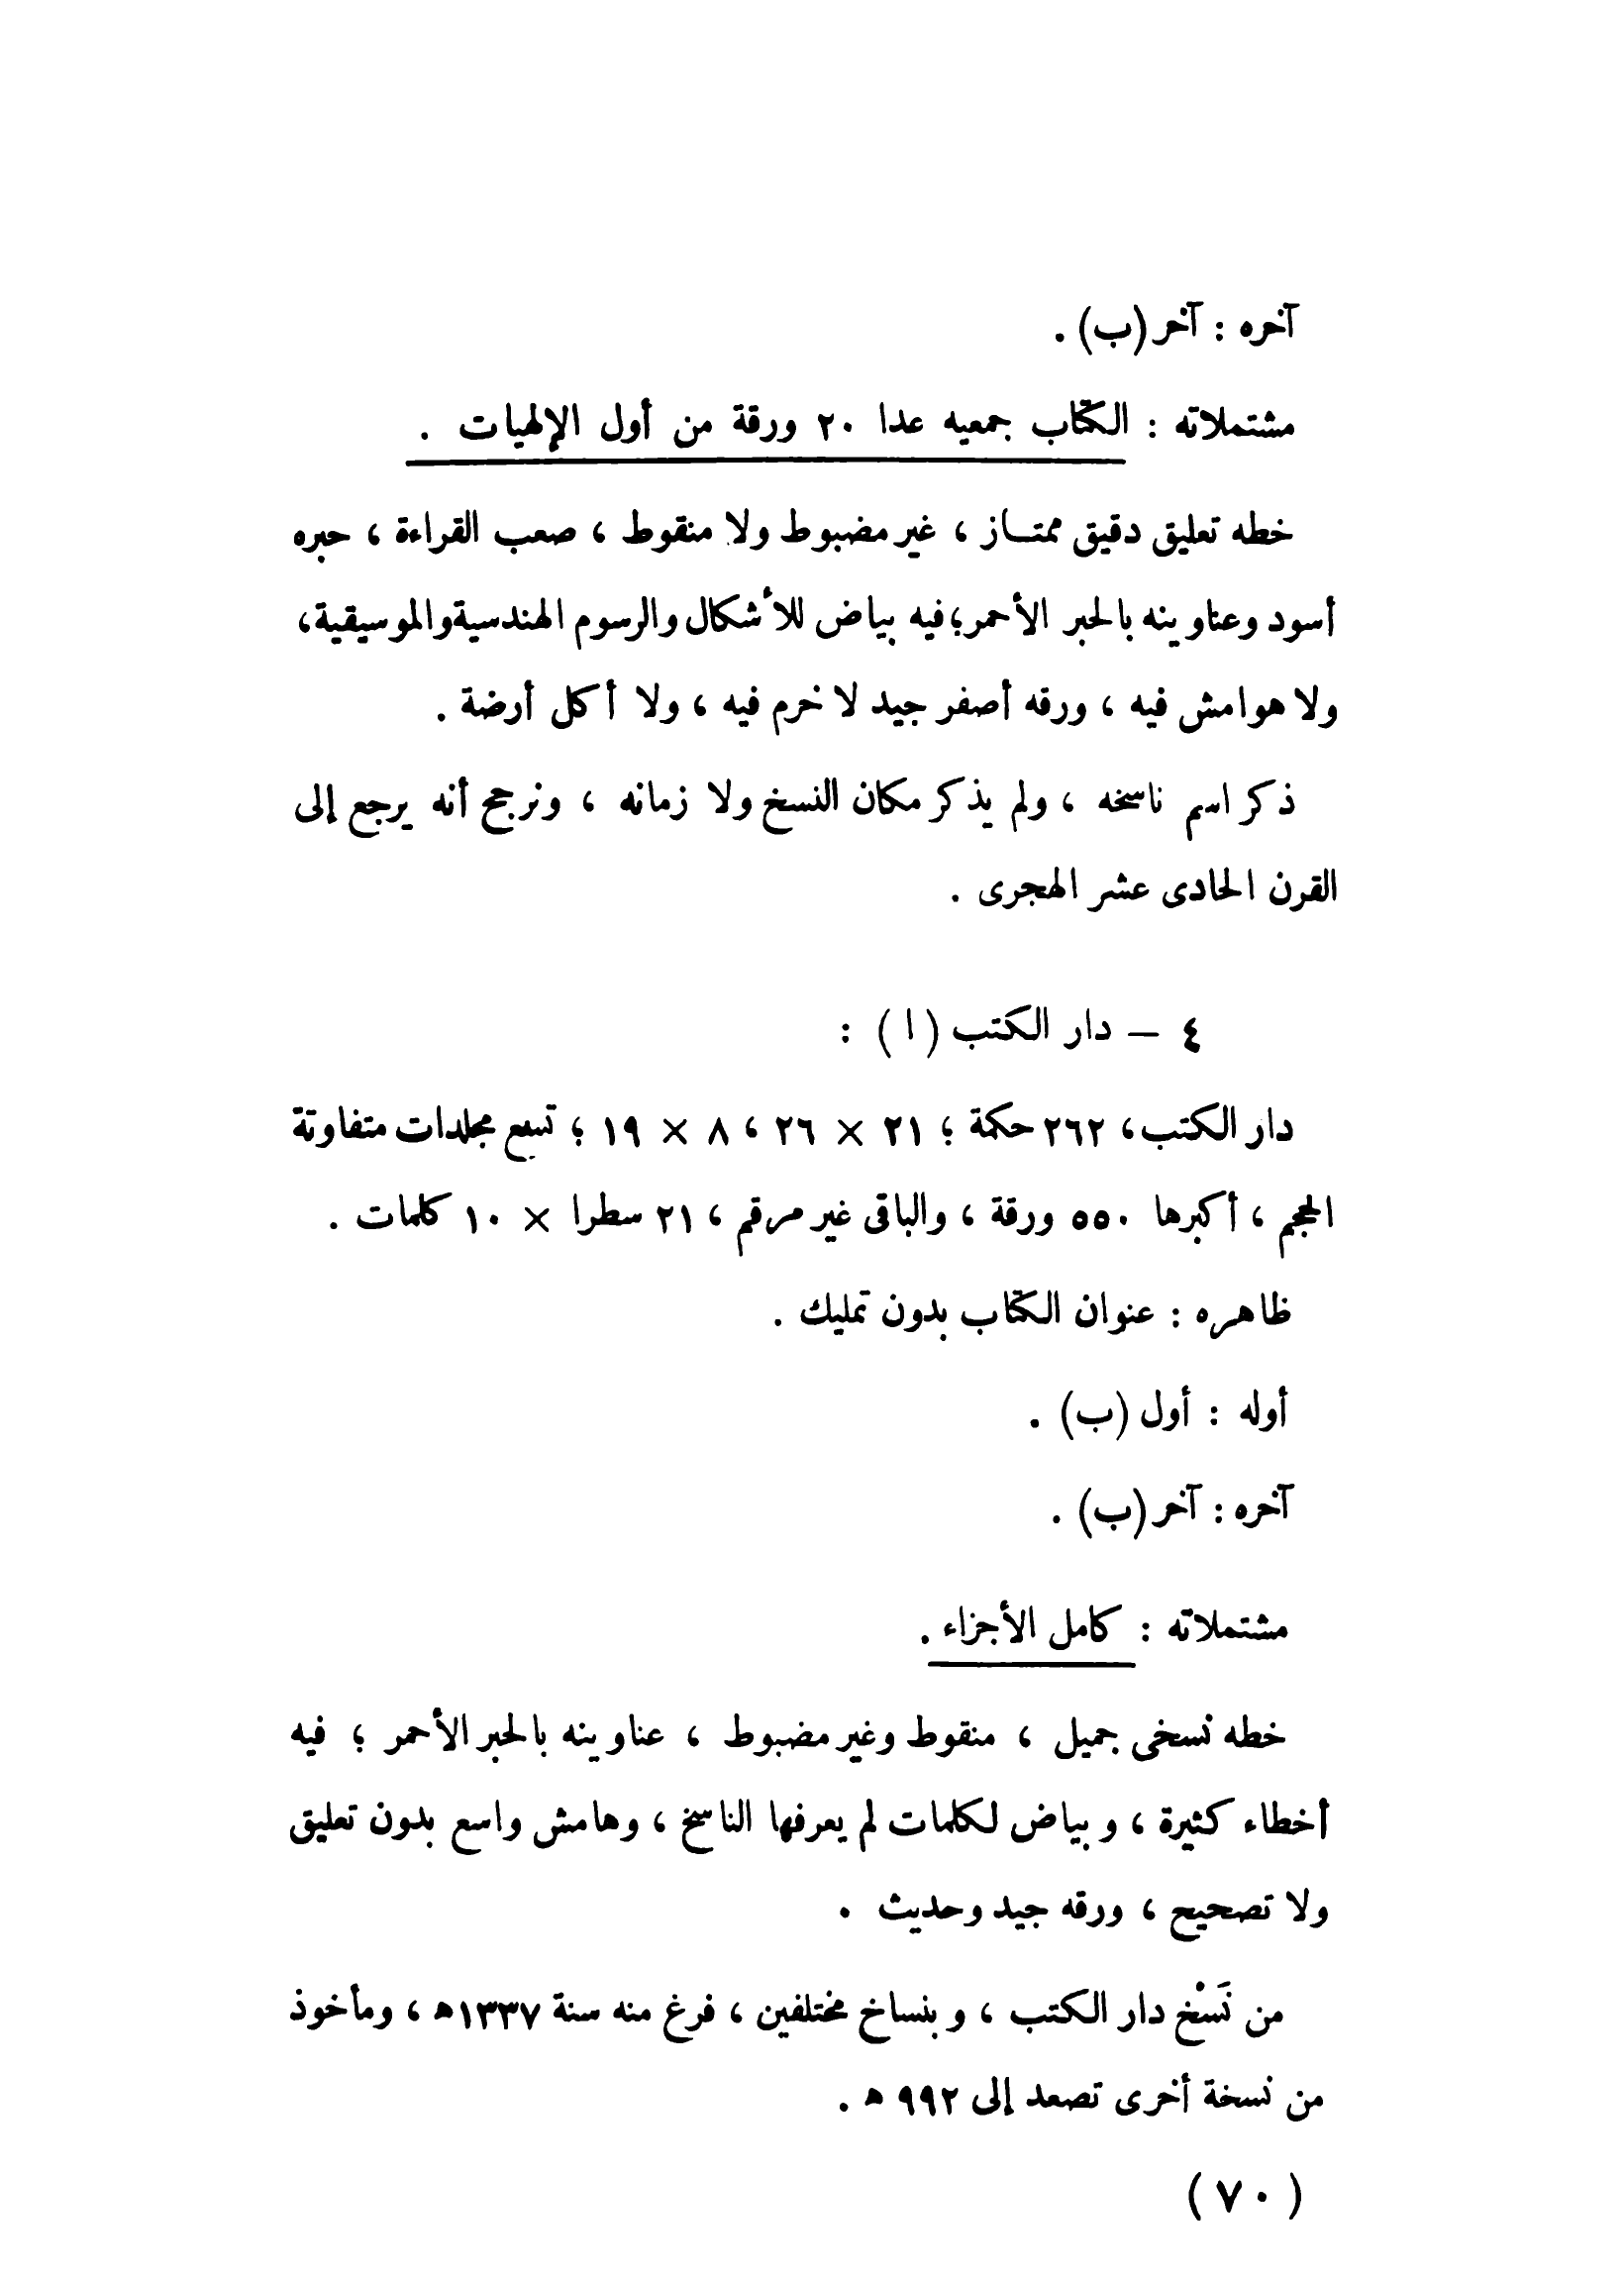 آخره : آخر (ب) .
مشتملاته : الكتاب جمعيه عدا ٢٠ ورقة من أول الإلهيات .
خطه تعليق دقيق ممتاز ، غير مضبوط ولا منقوط ، صعب القراءة ، حبره
أسود وعناوينه بالحبر الأحمر؛ فيه بياض للأشكال والرسوم الهندسية والموسيقية ،
ولا هوامش فيه ، ورقه أصفر جيد لا خرم فيه ، ولا أكل أرضة .
ذكر اسم ناسخه ، ولم يذكر مكان النسخ ولا زمانه ، ونرجح أنه يرجع إلى
القرن الحادى عشر الهجرى .
٤ – دار الكتب ( ا ) :
دار الكتب ، ٢٦٢ حكمة ؛ ٢١ × ٢٦ ، ٨ × ١٩ ؛ تسع مجلدات متفاوتة
الحجم ، أكبرها ٥٥٠ ورقة ، والباقى غير مرقم ، ٢١ سطرا × ١٠ كلمات .
ظاهره : عنوان الكتاب بدون تمليك .
أوله : أول (ب) .
آخره : آخر (ب) .
مشتملاته : كامل الأجزاء .
خطه نسخى جميل ، منقوط وغير مضبوط ، عناوينه بالحبر الأحمر ؛ فيه
أخطاء كثيرة ، وبياض لكلمات لم يعرفها الناسخ ، وهامش واسع بدون تعليق
ولا تصحيح ، ورقه جيد وحديث .
من نَسْخ دار الكتب ، وبنساخ مختلفين ، فرغ منه سنة ١٣٣٧ه ، ومأخوذ
من نسخة أخرى تصعد إلى ٩٩٢ ه .
( ٧٠ )